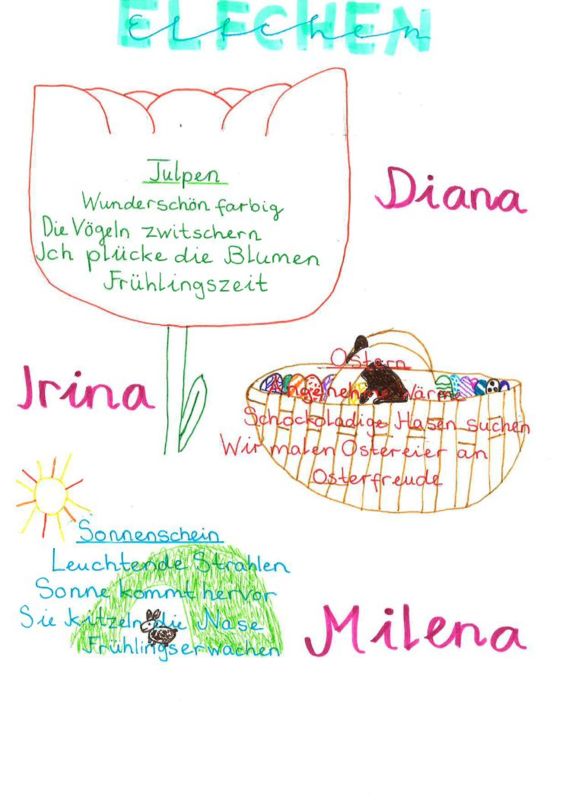 ELFCHEN
Tulpen
Wunderschön farbig
Die Vögeln zwitschern
Ich plücke die Blumen
Frühlingszeit
Diana
Irina
Ostern
Angenehme Wärme
Schockoladige Hasen suchen
Wir malen Ostereier an
Osterfreude
Sonnenschein
Leuchtende Strahlen
Sonne kommt hervor
Sie kitzeln die Nase
Frühlingserwachen
Milena